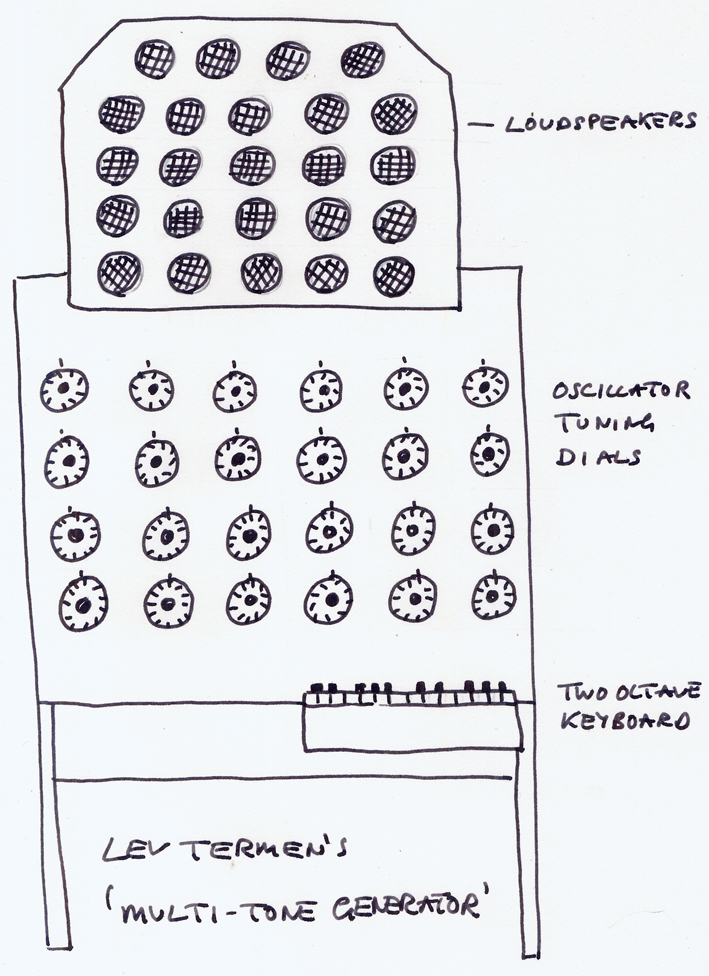 — LOUDSPEAKERS
OSCILLATOR
TUNING
DIALS
TWO OCTAVE
KEYBOARD
LEV TERMEN'S
'MULTI-TONE GENERATOR'